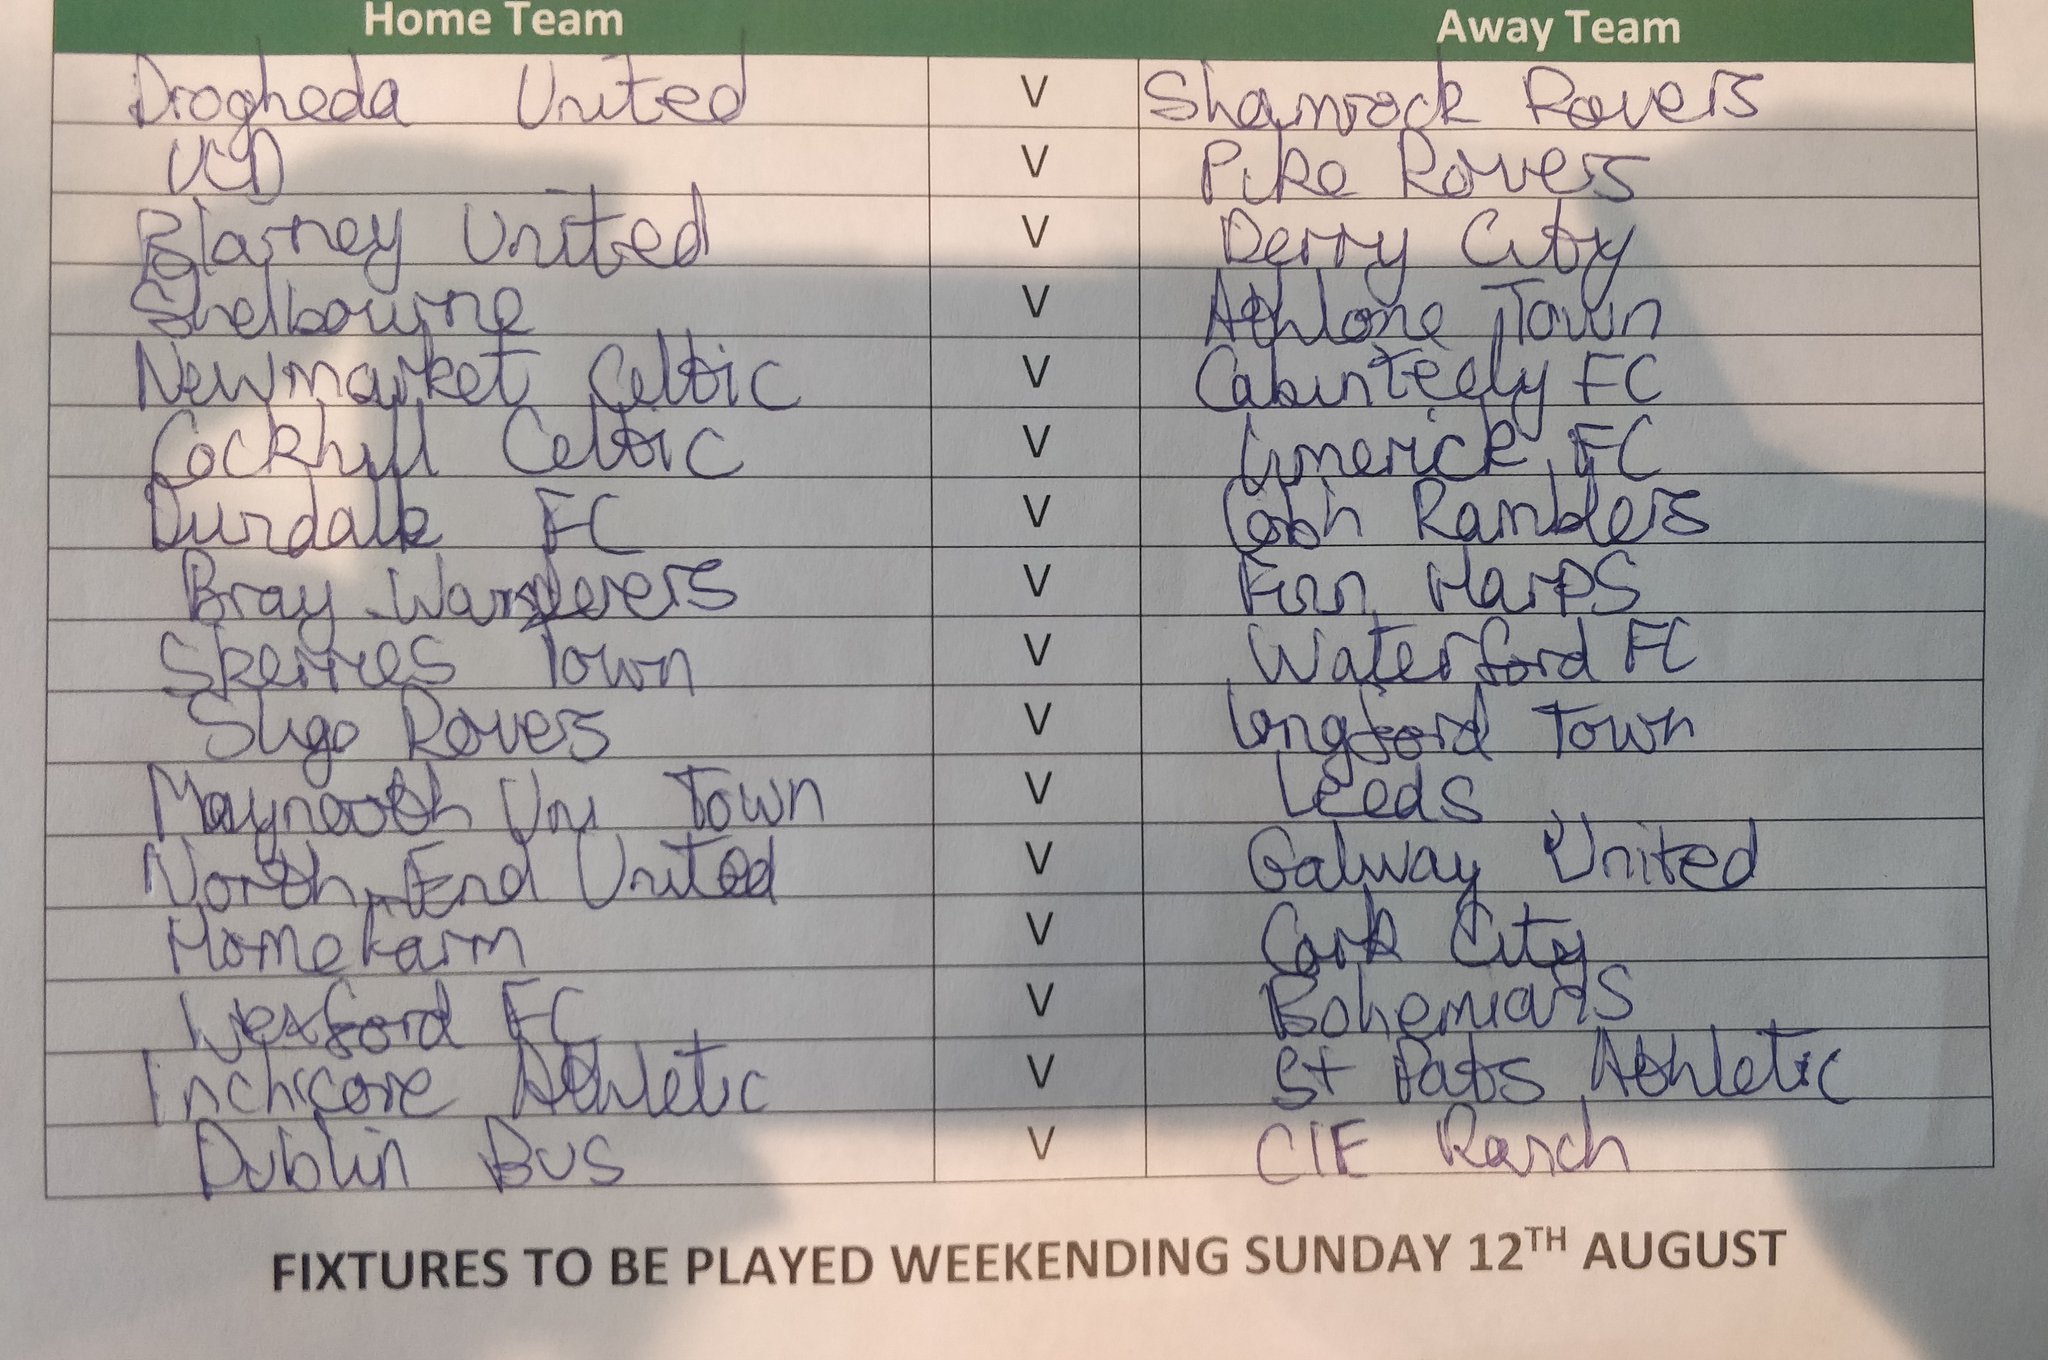 Home Team Away Team
Drogheda United V Shamrock Rovers
UCD V Pike Rovers
Blarney United V Derry City
Shelbourne V Athlone Town
Newmarket Celtic V Cabinteely FC
Cockhill Celtic V Limerick FC
Dundalk FC V Cobh Ramblers
Bray Wanderers V Finn Harps
Skerries Town V Waterford FC
Sligo Rovers V Longford Town
Maynooth Uni Town V Leeds
North End United V Galway United
Home Farm V Cork City
Wexford FC V Bohemians
Inchicore Athletic V St Pats Athletic
Dublin Bus V CIE Ranch
FIXTURES TO BE PLAYED WEEKENDING SUNDAY 12TH AUGUST